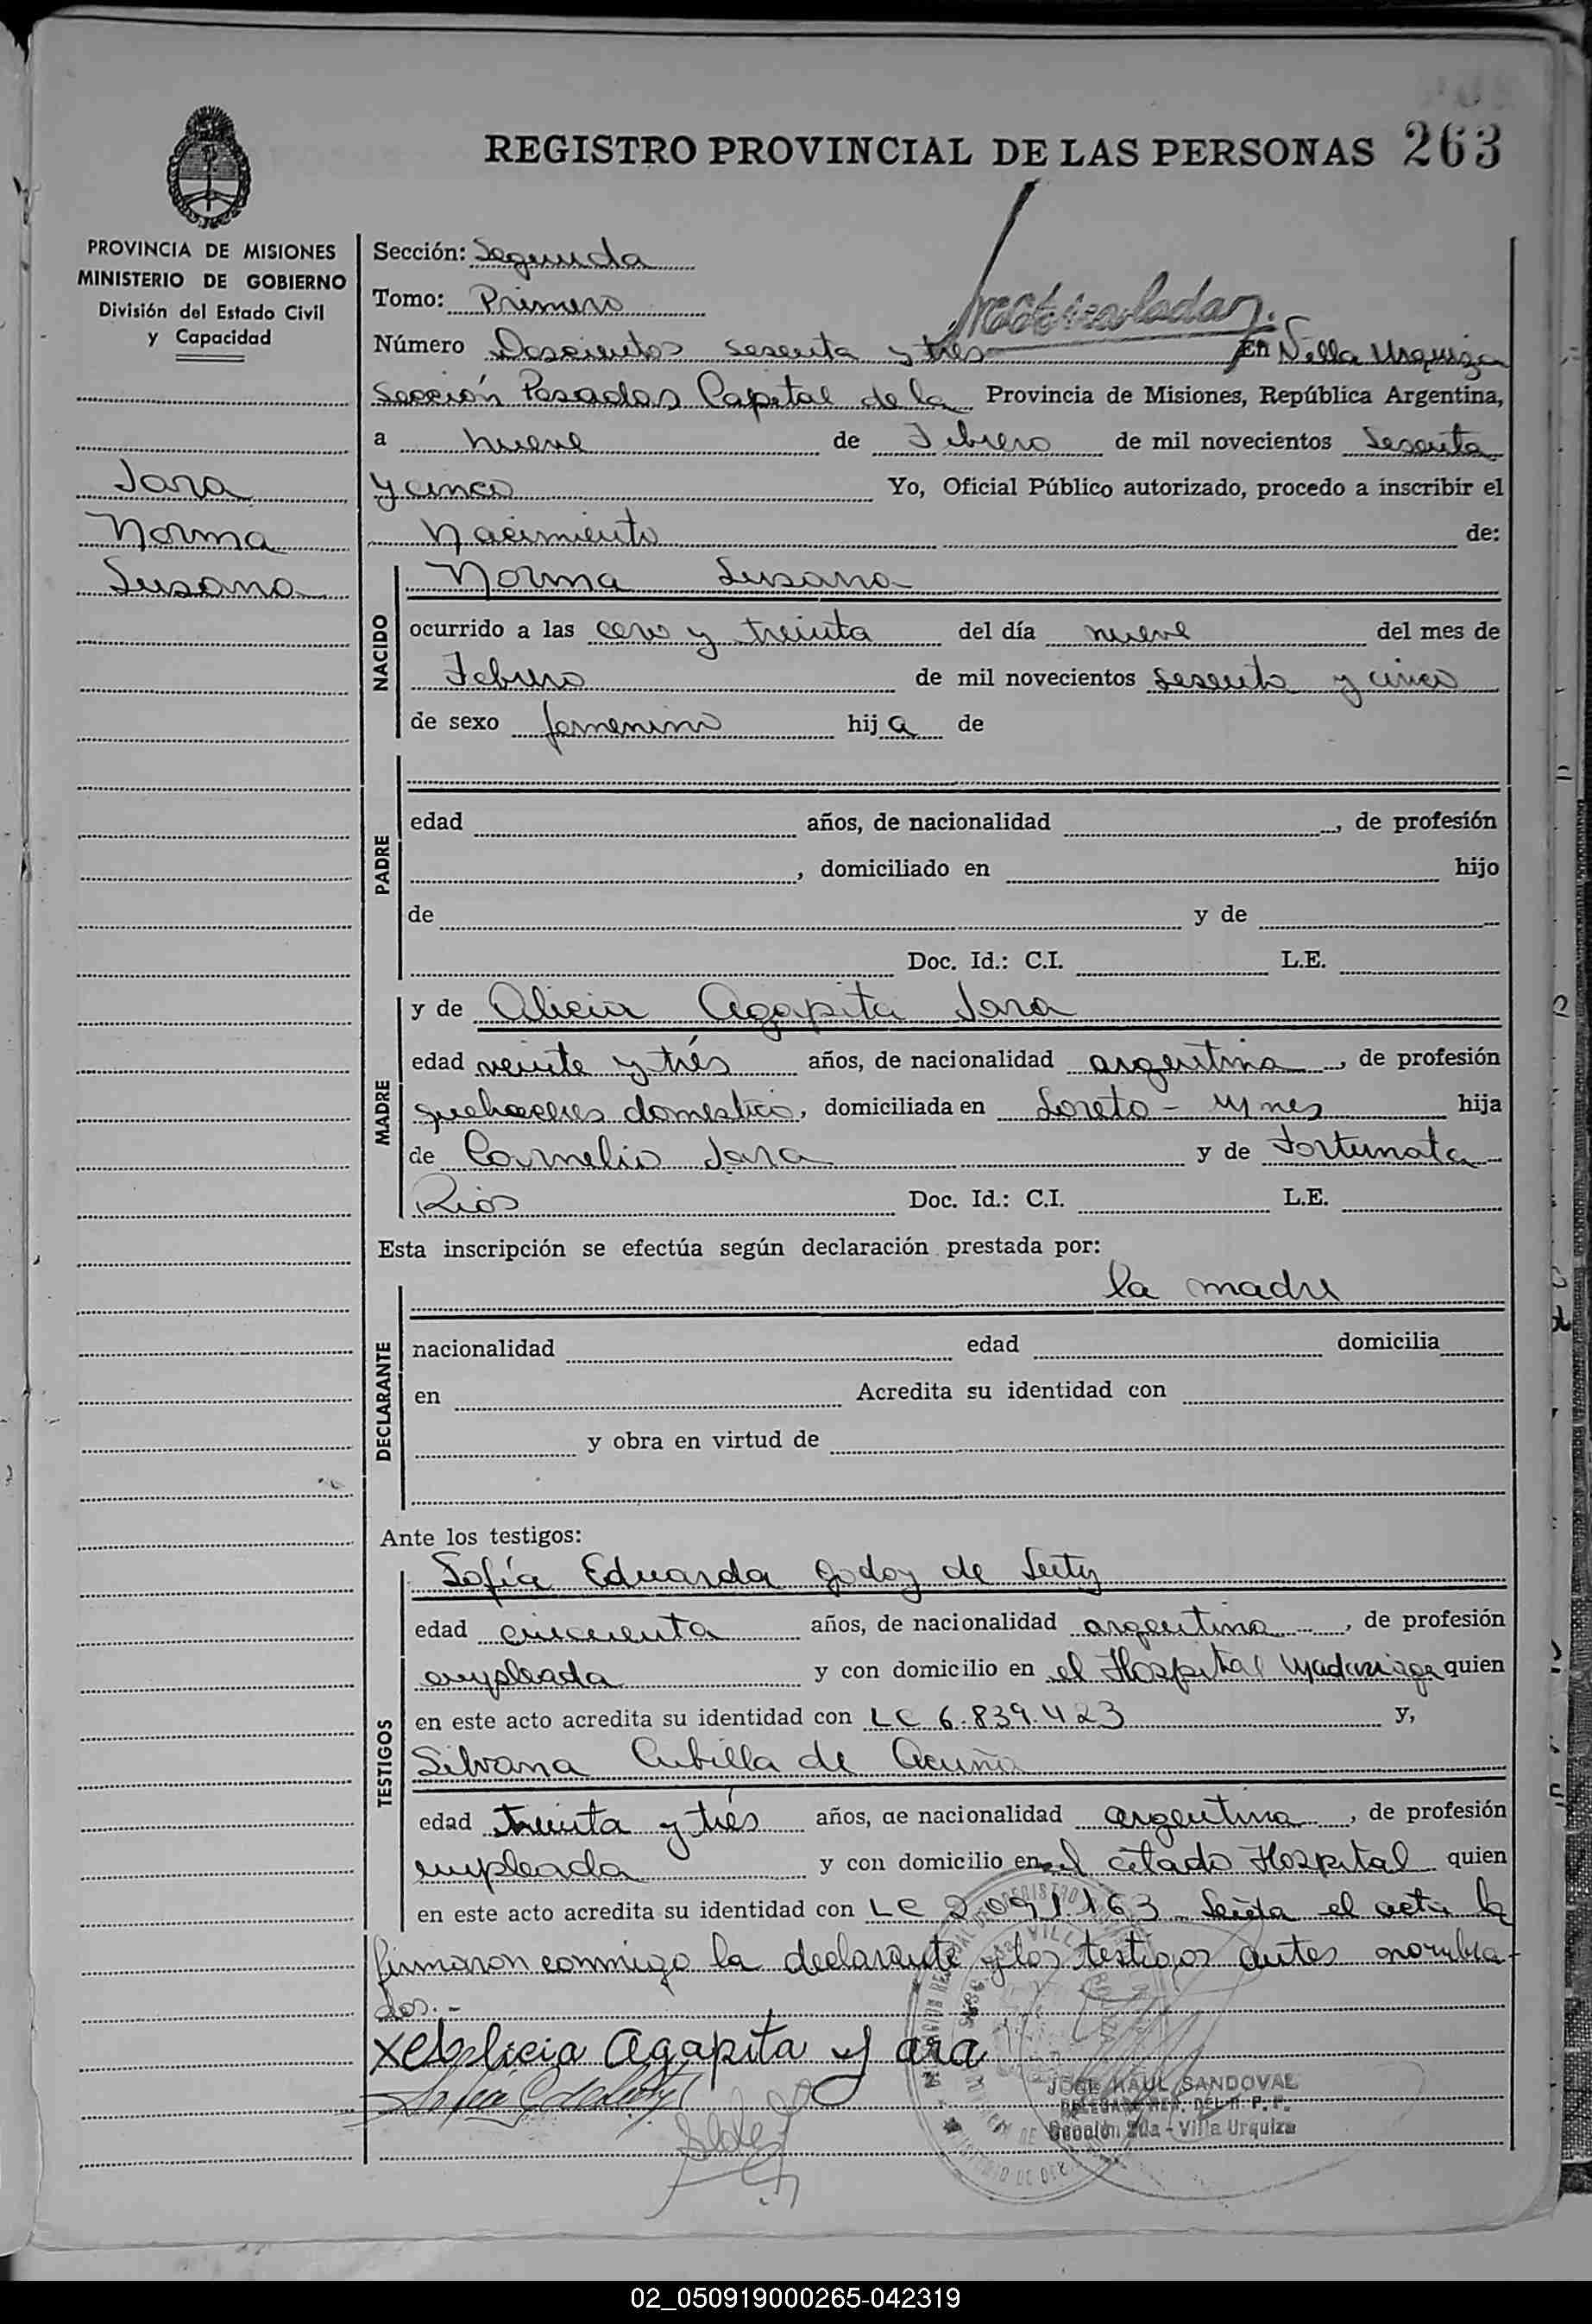 REGISTRO PROVINCIAL DE LAS PERSONAS 263
PROVINCIA DE MISIONES
MINISTERIO DE GOBIERNO
División del Estado Civil
y Capacidad
Jara
Norma
Susana
Sección: Segunda
Tomo: Primero
Matriculada
Número Doscientos sesenta y tres En Villa Urquiza
Sección Posadas Capital de la Provincia de Misiones, República Argentina,
a nueve de Febrero de mil novecientos Sesenta
y cinco Yo, Oficial Público autorizado, procedo a inscribir el
Nacimiento de:
NACIDO
Norma Susana
ocurrido a las cero y treinta del día nueve del mes de
Febrero de mil novecientos sesenta y cinco
de sexo femenino hija de
PADRE
edad años, de nacionalidad , de profesión
, domiciliado en hijo
de y de
Doc. Id.: C.I. L.E.
MADRE
y de Alicia Agapita Jara
edad veinte y trés años, de nacionalidad argentina , de profesión
quehaceres domestico, domiciliada en Loreto - Mnes hija
de Cornelio Jara y de Fortunata
Rios Doc. Id.: C.I. L.E.
Esta inscripción se efectúa según declaración prestada por:
DECLARANTE
la madre
nacionalidad edad domicilia
en Acredita su identidad con
y obra en virtud de
Ante los testigos:
TESTIGOS
Sofía Eduarda Godoy de
edad cincuenta años, de nacionalidad argentina , de profesión
empleada y con domicilio en el Hospital Madariaga quien
en este acto acredita su identidad con LC 6.839.423 y,
Silvana Cubilla de Acuña
edad treinta y trés años, de nacionalidad argentina , de profesión
empleada y con domicilio en el citado Hospital quien
en este acto acredita su identidad con LC 2.091.163 Leída el acta la
firmaron conmigo la declarante y los testigos antes nombra-
dos.-
Alicia Agapita Jara
JOSE RAUL SANDOVAL
Sección 2da - Villa Urquiza
02_050919000265-042319